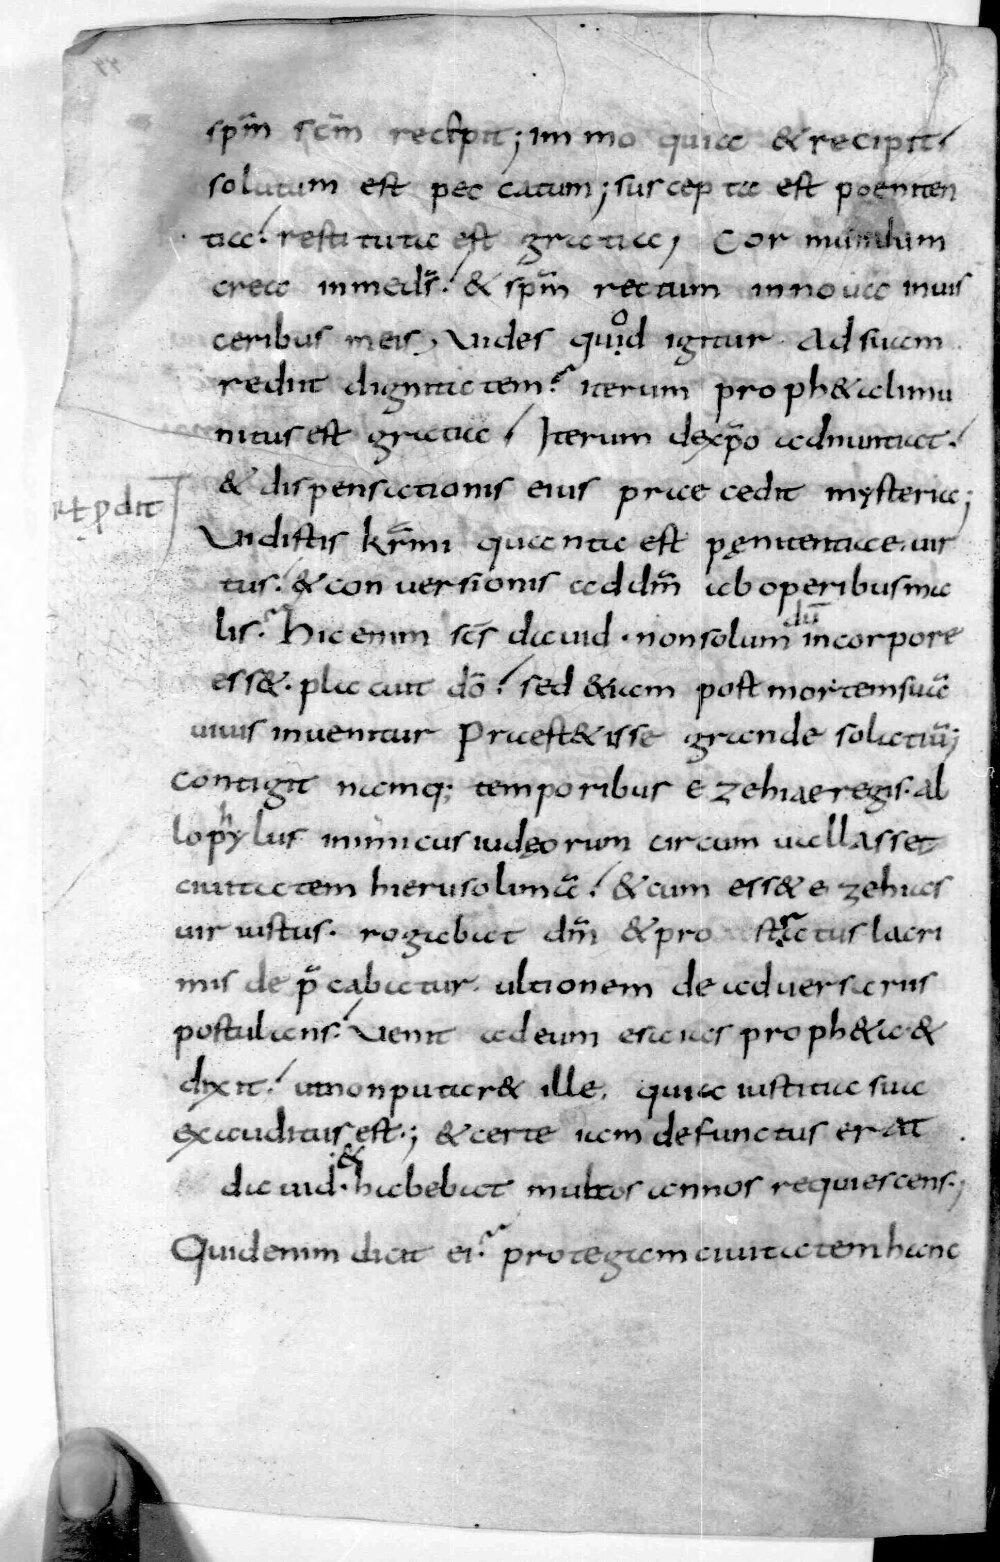 spm̄ scm̄ recępit; im mo quia & recipit
solutum est pec catum; suscep ta est poeniten
tia. restituta est gratia; Cor mundum
crea in me ds̄. & spm̄ rectum innoua in uis
ceribus meis, Uides quod igitur. Ad suam
rediit dignitatem. iterum proph&ali mu
nitus est gratia. Iterum de xp̄o adnuntiat.
& dispensationis eius prae cedit mysteria;
Uidistis kr̄mi quanta est pęnitentiae uir
tus. & conuersionis ad dm̄ ab operibus ma
lis. Hic enim scs̄ dauid. non solum dū in corpore
ess&. placuit dō. sed &iam post mortem suā
uiuis inuenitur Praest&isse grande solatiū;
Contigit namq; temporibus ezehiae regis. al
lophylus inimicus iudęorum circum uallasset
ciuitatem hierusolimā. & cum ess& ezehias
uir iustus. rogabat dm̄ & pro stratus lacri
mis de p̄cabatur. ultionem de aduersariis
postulans. Uenit ad eum esaias proph&a &
dixit. ut non putar& ille. quia iustitia sua
exauditus est.; & certe iam defunctus erat
dauid. & habebat multos annos requiescens.;
Quid enim dicit ei. protegam ciuitatem hanc